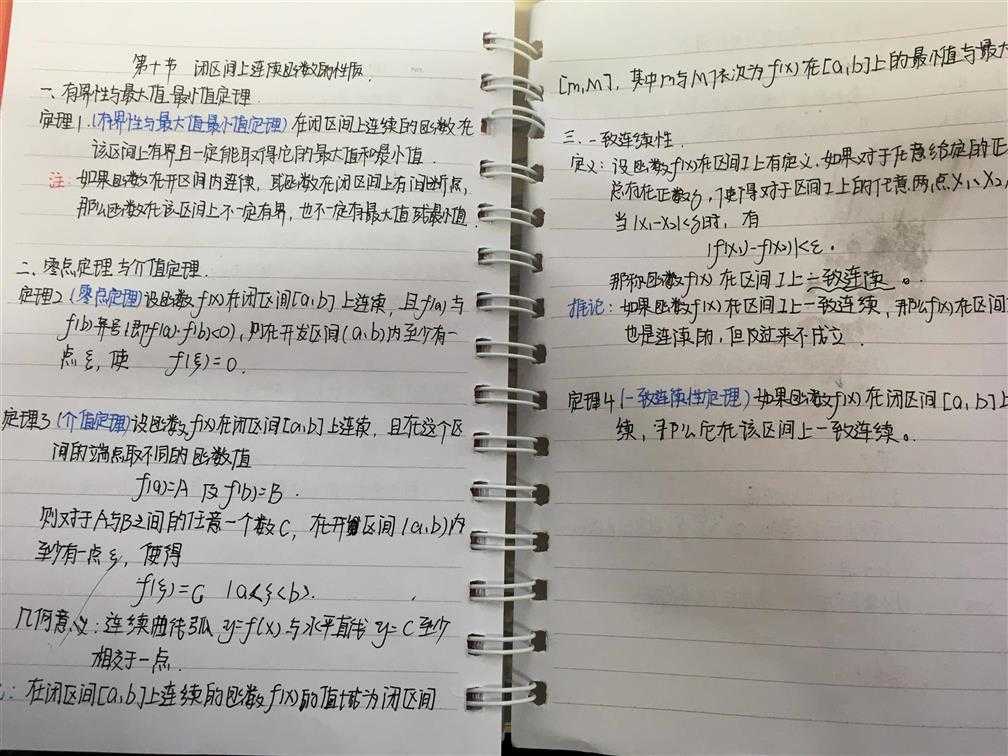 第十节 闭区间上连续函数的性质.
一、有界性与最大值最小值定理.
定理1.(有界性与最大值最小值定理)在闭区间上连续的函数在
该区间上有界且一定能取得它的最大值和最小值.
注:如果函数在开区间内连续,或函数在闭区间上有间断点,
那么函数在该区间上不一定有界,也不一定有最大值或最小值.
二、零点定理与介值定理.
定理2(零点定理)设函数f(x)在闭区间[a,b]上连续,且f(a)与
f(b)异号(即f(a)·f(b)<0),则在开发区间(a,b)内至少有一
点ξ,使 f(ξ)=0.
定理3(介值定理)设函数f(x)在闭区间[a,b]上连续,且在这个区
间的端点取不同的函数值
f(a)=A 及f(b)=B.
则对于A与B之间的任意一个数C,在开区间(a,b)内
至少有一点ξ,使得
f(ξ)=C (a<ξ<b).
几何意义:连续曲线弧y=f(x)与水平直线y=C至少
相交于一点.
:在闭区间[a,b]上连续的函数f(x)的值域为闭区间
[m,M],其中m与M依次为f(x)在[a,b]上的最小值与最大
三.一致连续性.
定义:设函数f(x)在区间I上有定义,如果对于任意给定的正
总存在正数δ,使得对于区间I上的任意两点x₁、x₂,
当|x₁-x₂|<δ时,有
|f(x₁)-f(x₂)|<ε.
那称函数f(x)在区间I上一致连续。
推论:如果函数f(x)在区间I上一致连续,那么f(x)在区间
也是连续的,但反过来不成立.
定理4(一致连续性定理)如果函数f(x)在闭区间[a,b]上
续,那么它在该区间上一致连续。